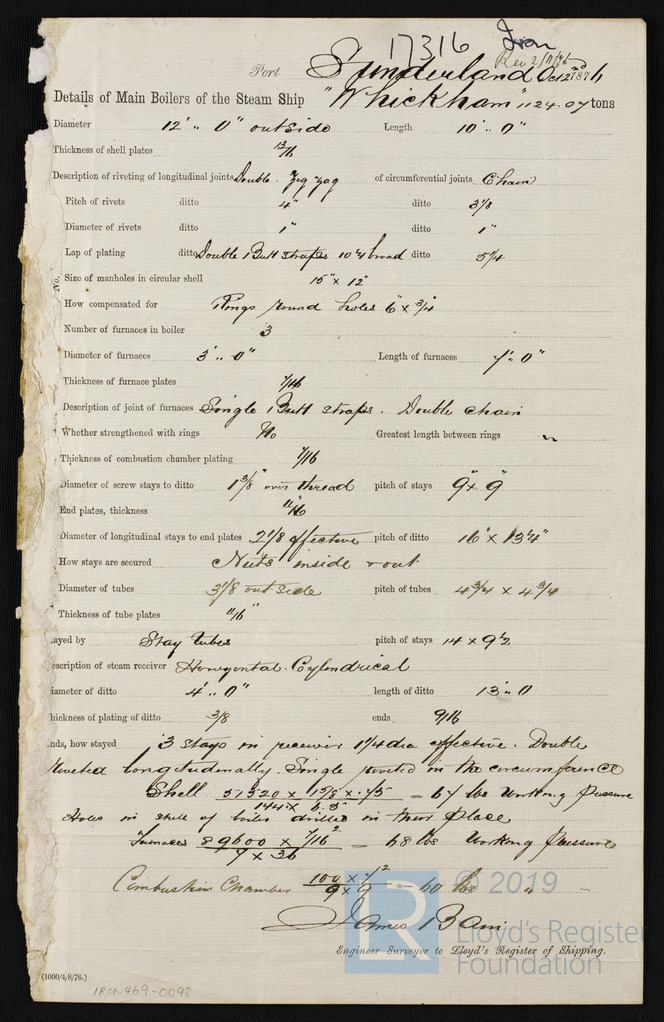 17316 Iron
Rec 2/11/76
Port Sunderland Oct 27th 1876
Details of Main Boilers of the Steam Ship "Whickham" 1124.07 tons
Diameter 12' " 0" outside Length 10' " 0"
Thickness of shell plates 13/16
Description of riveting of longitudinal joints Double. Zig zag of circumferential joints Chain
Pitch of rivets ditto 4" ditto 3 1/8
Diameter of rivets ditto 1" ditto 1"
Lap of plating ditto Double Butt straps broad ditto 5 1/4
No.
Size of manholes in circular shell 15" x 12"
How compensated for Rings round holes 6 x 3/4
Number of furnaces in boiler 3
Diameter of furnaces 3' " 0" Length of furnaces 7' " 0"
Thickness of furnace plates 7/16
Description of joint of furnaces Single Butt straps. Double chain
Whether strengthened with rings No Greatest length between rings "
Thickness of combustion chamber plating 7/16
Diameter of screw stays to ditto 1 3/8" over thread pitch of stays 9" x 9"
End plates, thickness 11/16
Diameter of longitudinal stays to end plates 2 1/8 effective pitch of ditto 16" x 13 1/4"
How stays are secured Nuts inside & out
Diameter of tubes 3 1/8 outside pitch of tubes 4 3/4 x 4 3/4
Thickness of tube plates 11/16"
ayed by Stay tubes pitch of stays 14 x 9 1/2
escription of steam receiver Horizontal. Cylindrical
iameter of ditto 4' " 0" length of ditto 13' " 0
hickness of plating of ditto 3/8 ends 9/16
nds, how stayed 3 stays in receiver 1 1/4 dia effective. Double
riveted longitudinally. Single riveted in the circumference
Shell. = 67 lbs Working pressure
Holes in shell of boiler drilled in their place
Furnaces 89600 x 7/16² / 7 x 36 = 68 lbs Working Pressure
Combustion Chamber = 60 lbs "
James Bain
Engineer Surveyor to Lloyd's Register of Shipping.
(1000/4/8/76.)
IRON469-0098
© 2019
LR
Lloyd's Register
Foundation